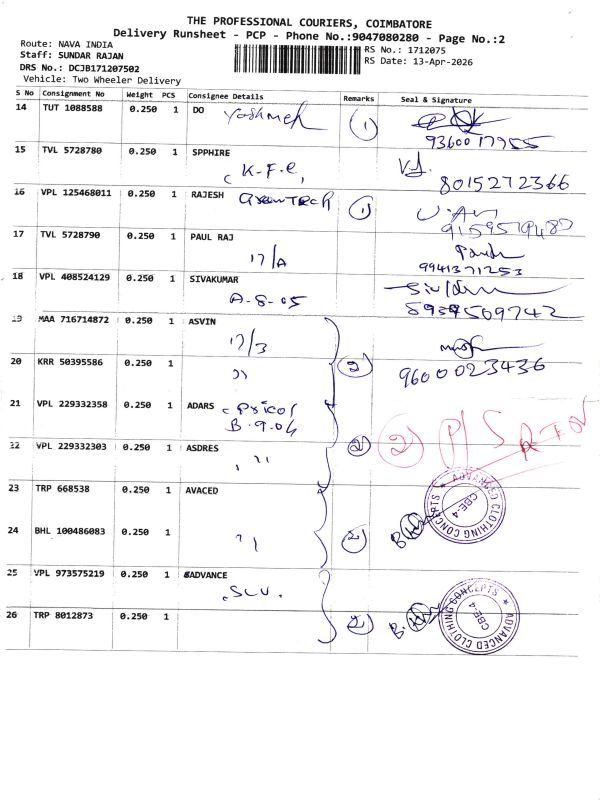 THE PROFESSIONAL COURIERS, COIMBATORE
Delivery Runsheet - PCP - Phone No.:9047080280 - Page No.:2
Route: NAVA INDIA
RS No.: 1712075
Staff: SUNDAR RAJAN
RS Date: 13-Apr-2026
DRS No.: DCJB171207502
Vehicle: Two Wheeler Delivery
S No Consignment No Weight PCS Consignee Details Remarks Seal & Signature
14 TUT 1088588 0.250 1 DO Yoshmeh 1
9360017955
15 TVL 5728780 0.250 1 SPPHIRE
K-F.C,
8015272366
16 VPL 125468011 0.250 1 RAJESH GreenTech 1
9159519487
17 TVL 5728790 0.250 1 PAUL RAJ
17/A
9941371253
18 VPL 408524129 0.250 1 SIVAKUMAR
A-8-05
8939509742
19 MAA 716714872 0.250 1 ASVIN
17/3
20 KRR 50395586 0.250 1 2
9600023436
21 VPL 229332358 0.250 1 ADARS Pricol
B.9.04
2 P/S
22 VPL 229332303 0.250 1 ASDRES 2
23 TRP 668538 0.250 1 AVACED
ADVANCED CLOTHING CONCEPTS
CBE-4
24 BHL 100486083 0.250 1 2
25 VPL 973575219 0.250 1 6ADVANCE
SLV.
ADVANCED CLOTHING CONCEPTS
CBE-4
26 TRP 8012873 0.250 1 2